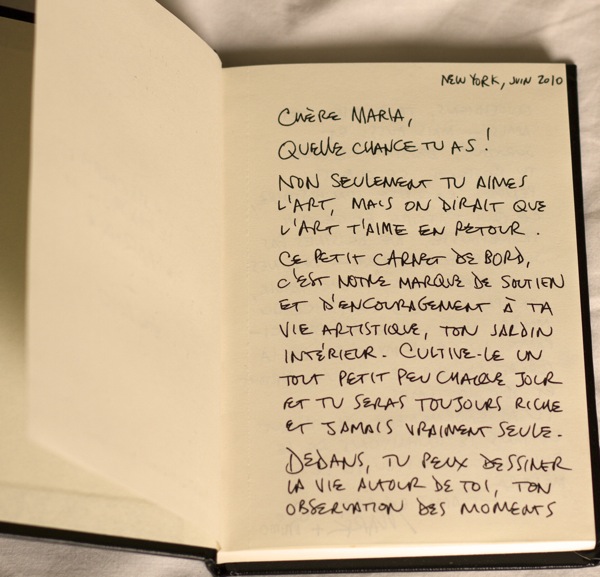 NEW YORK, JUIN 2010
CHÈRE MARIA,
QUELLE CHANCE TU AS !
NON SEULEMENT TU AIMES
L'ART, MAIS ON DIRAIT QUE
L'ART T'AIME EN RETOUR.
CE PETIT CARNET DE BORD,
C'EST NOTRE MARQUE DE SOUTIEN
ET D'ENCOURAGEMENT À TA
VIE ARTISTIQUE, TON JARDIN
INTÉRIEUR. CULTIVE-LE UN
TOUT PETIT PEU CHAQUE JOUR
ET TU SERAS TOUJOURS RICHE
ET JAMAIS VRAIMENT SEULE.
DEDANS, TU PEUX DESSINER
LA VIE AUTOUR DE TOI, TON
OBSERVATION DES MOMENTS